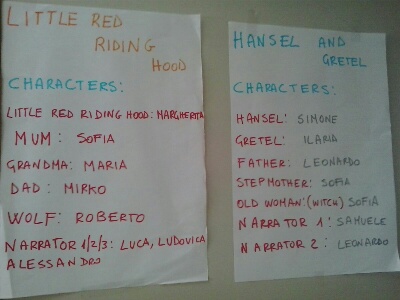 LITTLE RED
RIDING
HOOD
CHARACTERS:
LITTLE RED RIDING HOOD: MARGHERITA
MUM: SOFIA
GRANDMA: MARIA
DAD: MIRKO
WOLF: ROBERTO
NARRATOR 1/2/3: LUCA, LUDOVICA
ALESSANDRO
HANSEL AND
GRETEL
CHARACTERS:
HANSEL: SIMONE
GRETEL: ILARIA
FATHER: LEONARDO
STEPMOTHER: SOFIA
OLD WOMAN: (WITCH) SOFIA
NARRATOR 1: SAMUELE
NARRATOR 2: LEONARDO